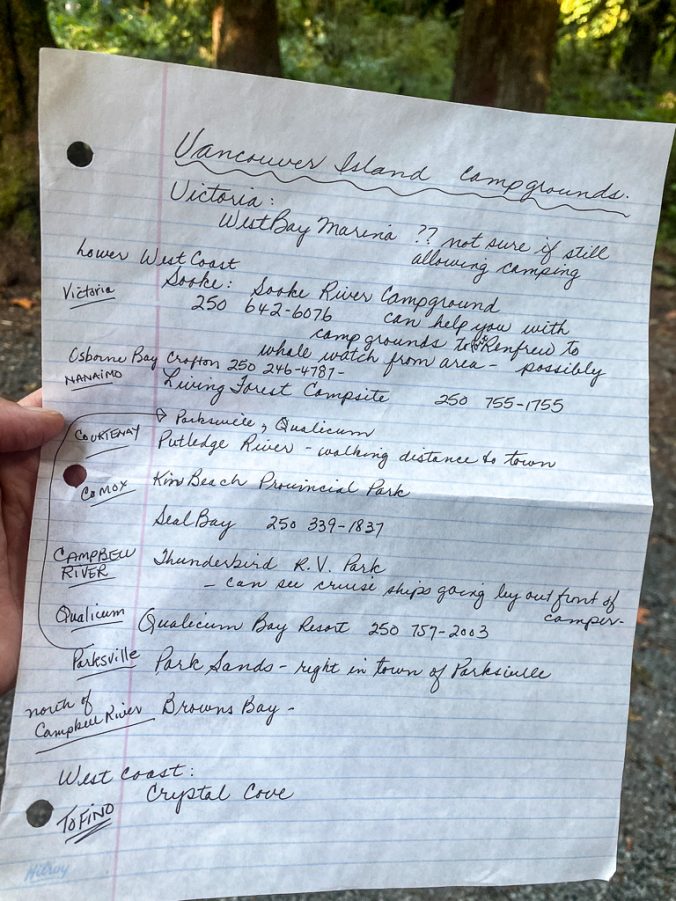 Vancouver Island Campgrounds.
Victoria:
West Bay Marina ?? not sure if still
allowing camping
Lower West Coast
Victoria
Sooke: Sooke River Campground
250 642-6076 can help you with
campgrounds to Renfrew to
whale watch from area - possibly
Osborne Bay Crofton 250 246-4787-
NANAIMO
Living Forest Campsite 250 755-1755
Parksville, Qualicum
COURTENAY
Putledge River - walking distance to town
COMOX
Kin Beach Provincial Park
Seal Bay 250 339-1837
CAMPBELL
RIVER
Thunderbird R.V. Park
- can see cruise ships going by out front of
camper-
Qualicum
Qualicum Bay Resort 250 757-2003
Parksville
Park Sands - right in town of Parksville
north of
Campbell River
Browns Bay -
West Coast:
Crystal Cove
TOFINO
Hilroy